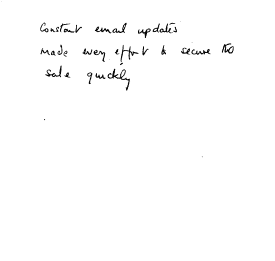 Constant email updates
made every effort to secure the
sale quickly